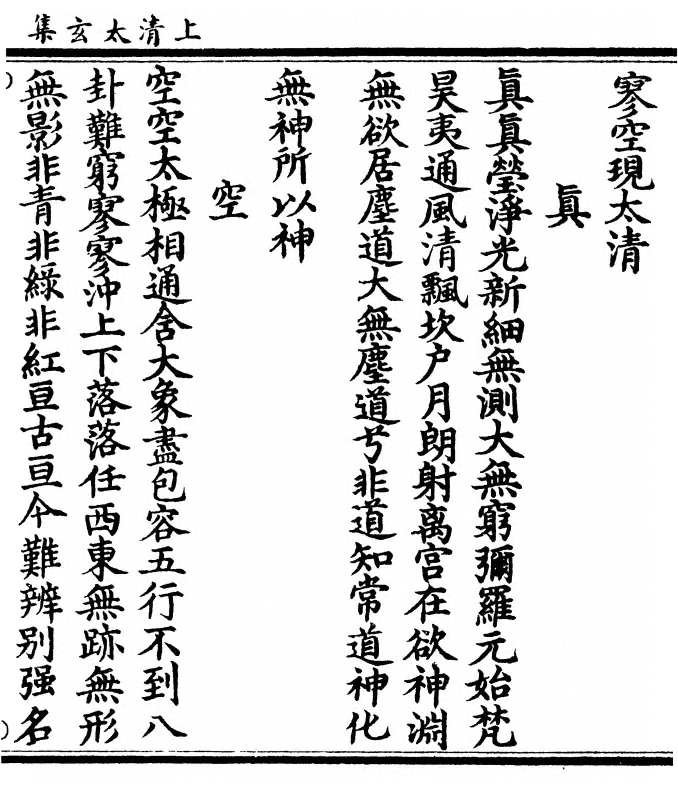 上清太玄集
寥空現太清
真
真真瑩淨光新細無測大無窮彌羅元始梵
昊夷通風清飄坎户月朗射离宫在欲神淵
無欲居塵道大無塵道兮非道知常道神化
無神所以神
空
空空太極相通含大象盡包容五行不到八
卦難窮寥寥沖上下落落任西東無跡無形
無影非青非綠非紅亘古亘今難辨别强名